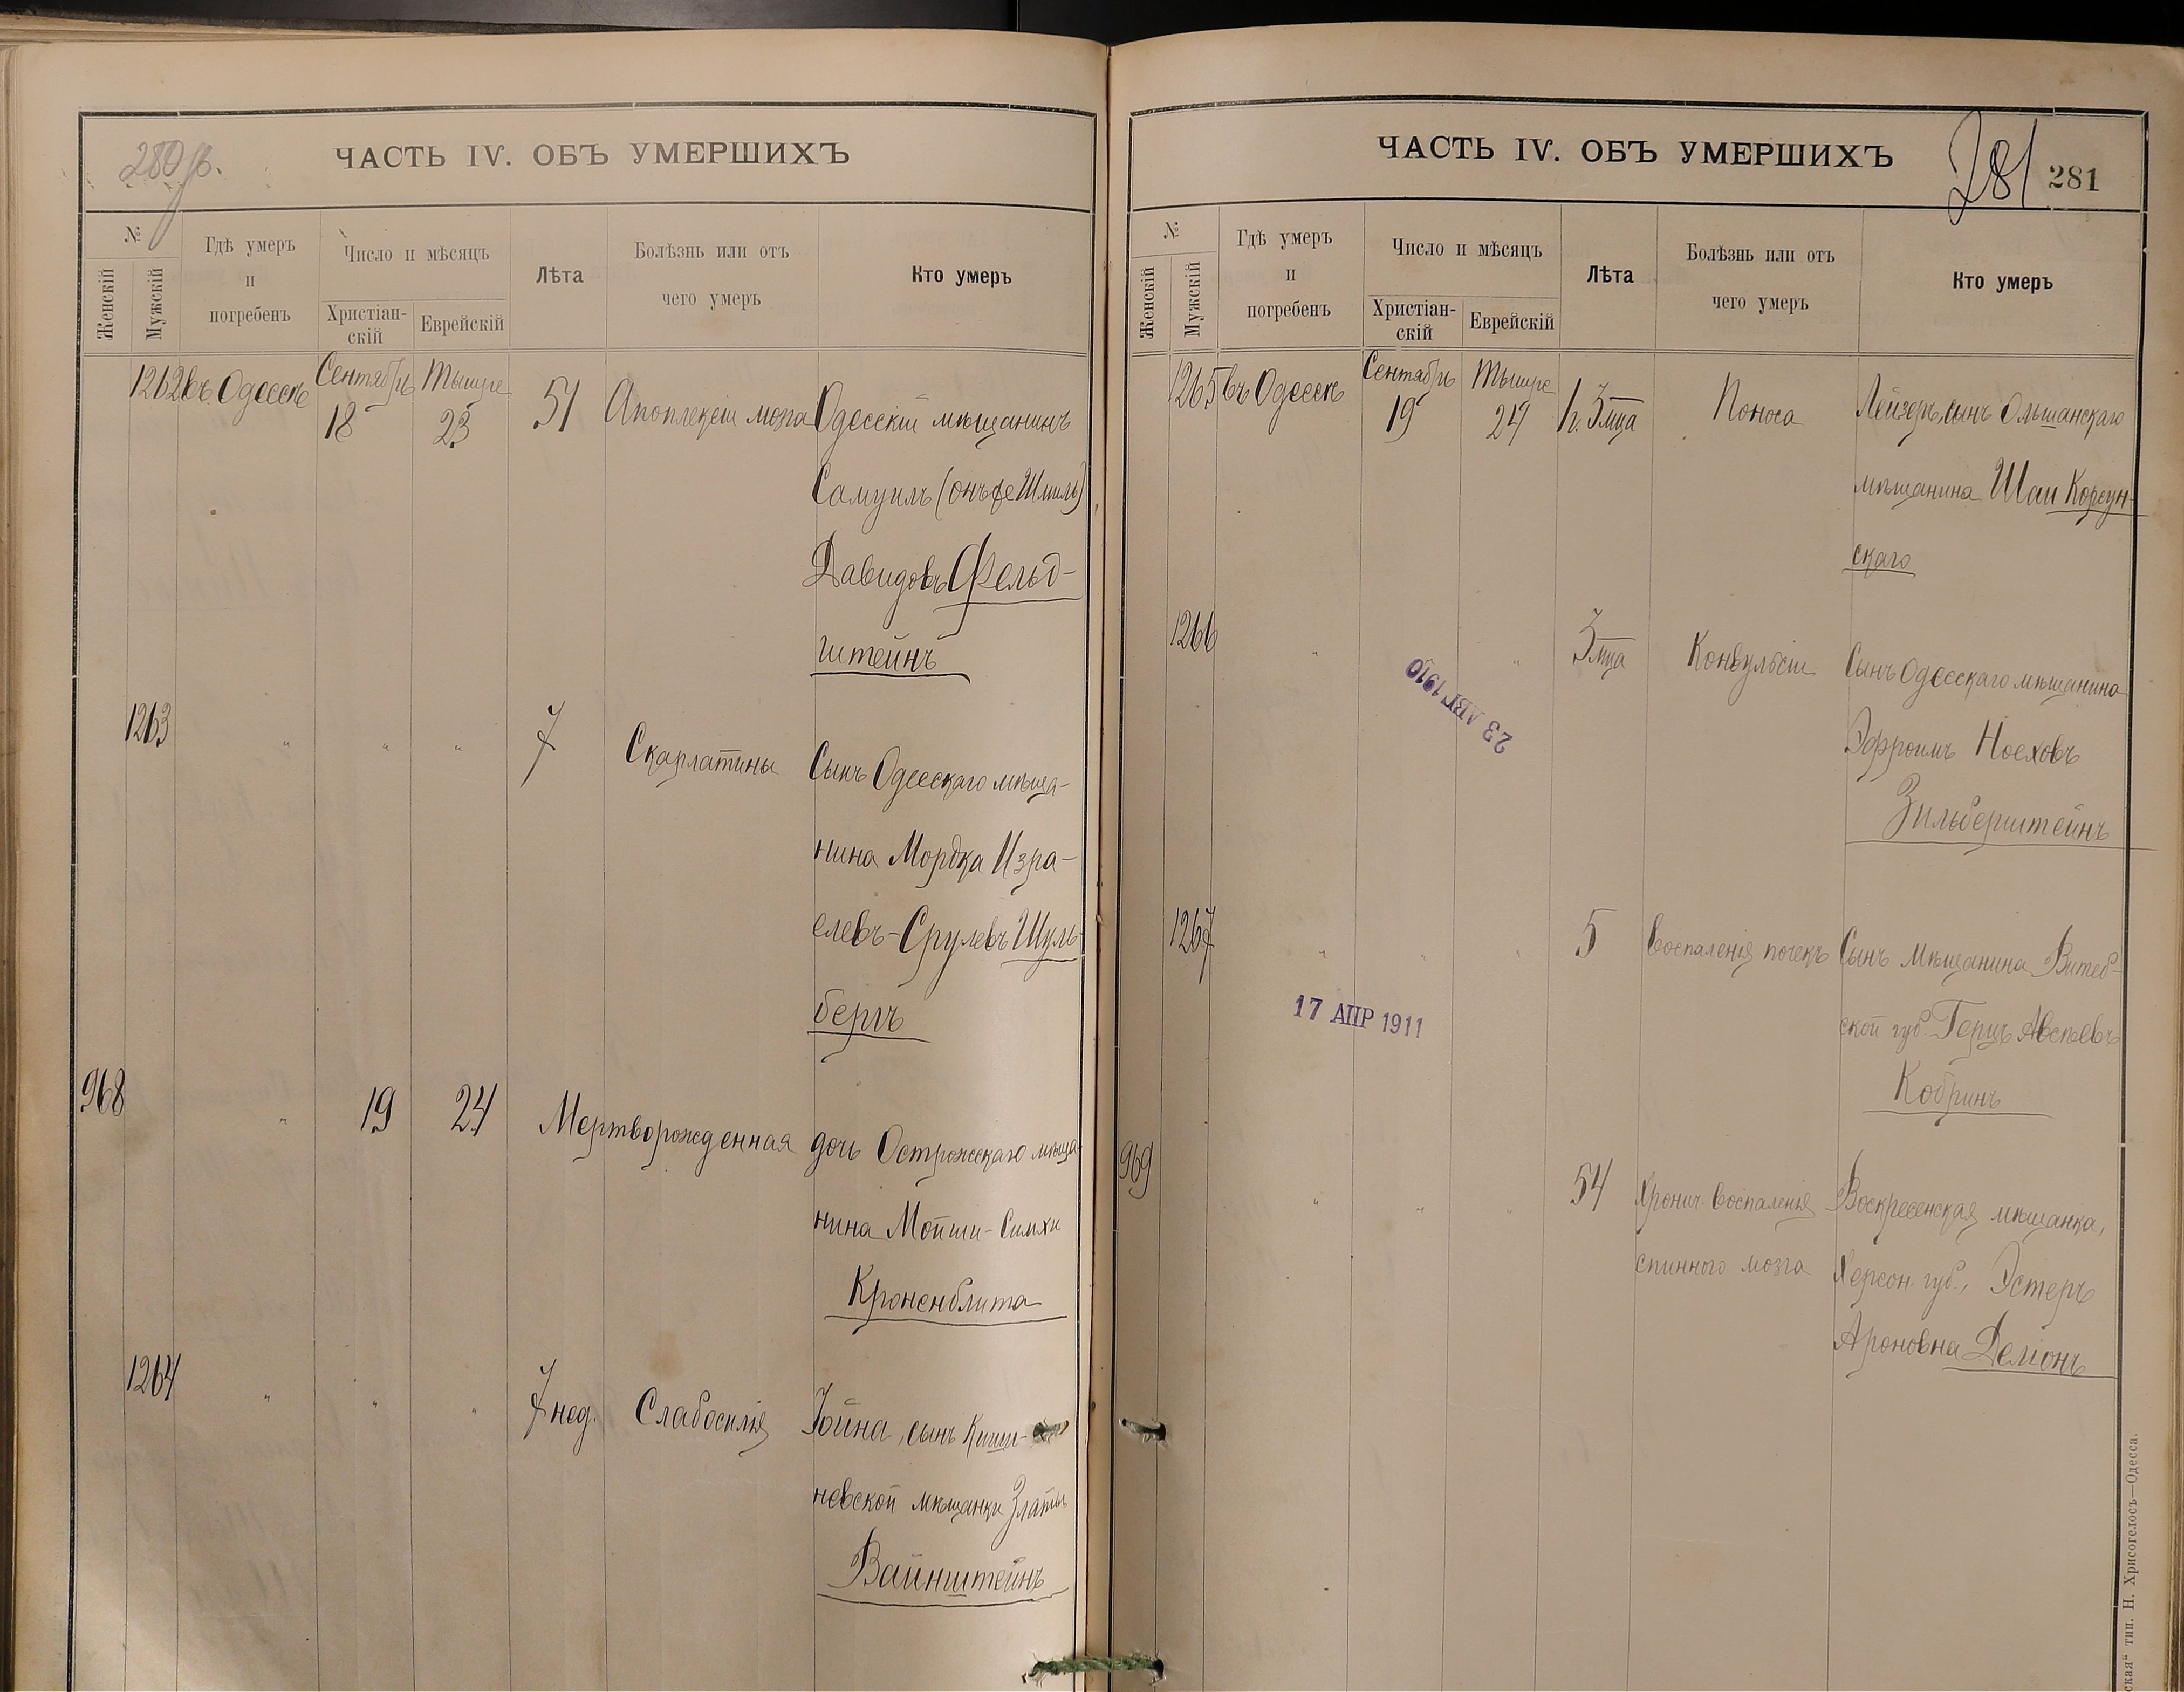 280 об.
ЧАСТЬ IV. ОБЪ УМЕРШИХЪ
№
Женскій
Мужскій
Гдѣ умеръ
и
погребенъ
Число и мѣсяцъ
Христіан-
скій
Еврейскій
Лѣта
Болѣзнь или отъ
чего умеръ
Кто умеръ
1262 въ Одессѣ Сентябрь 18 Тышре 23 51 Апоплексіи мозга Одесскій мѣщанинъ
Самуилъ (онъ же Шмиль)
Давидовъ Фельд-
штейнъ
1263 " " " 7 Скарлатины Сынъ Одесскаго мѣща-
нина Мордка Изра-
елевъ-Срулевъ Шуль-
бергъ
968 " 19 24 Мертворожденная дочь Острожскаго мѣща-
нина Мойши-Симхи
Кроненблита
1264 " " " 7 нед. Слабосилія Іойна, сынъ Киши-
невской мѣщанки Златы
Вайнштейнъ
ЧАСТЬ IV. ОБЪ УМЕРШИХЪ
281 281
№
Женскій
Мужскій
Гдѣ умеръ
и
погребенъ
Число и мѣсяцъ
Христіан-
скій
Еврейскій
Лѣта
Болѣзнь или отъ
чего умеръ
Кто умеръ
1265 въ Одессѣ Сентябрь 19 Тышре 24 3 мца Поноса Лейзеръ, сынъ Ольшанскаго
мѣщанина Шаи Корсун-
скаго
1266 " " 3 мца Конвульсіи Сынъ Одесскаго мѣщанина
23 АВГ 1910
Эфроимъ Ноеховъ
Зильберштейнъ
1267 " " " 5 Воспаленія почекъ Сынъ мѣщанина Витеб-
17 АПР 1911
ской губ. Герцъ Авсѣевъ
Кобринъ
969 " " " 54 Хронич. воспаленія Воскресенская мѣщанка,
спинного мозга Херсон. губ., Эстеръ
Ароновна Деліонъ
ская" тип. Н. Хрисогелосъ—Одесса.